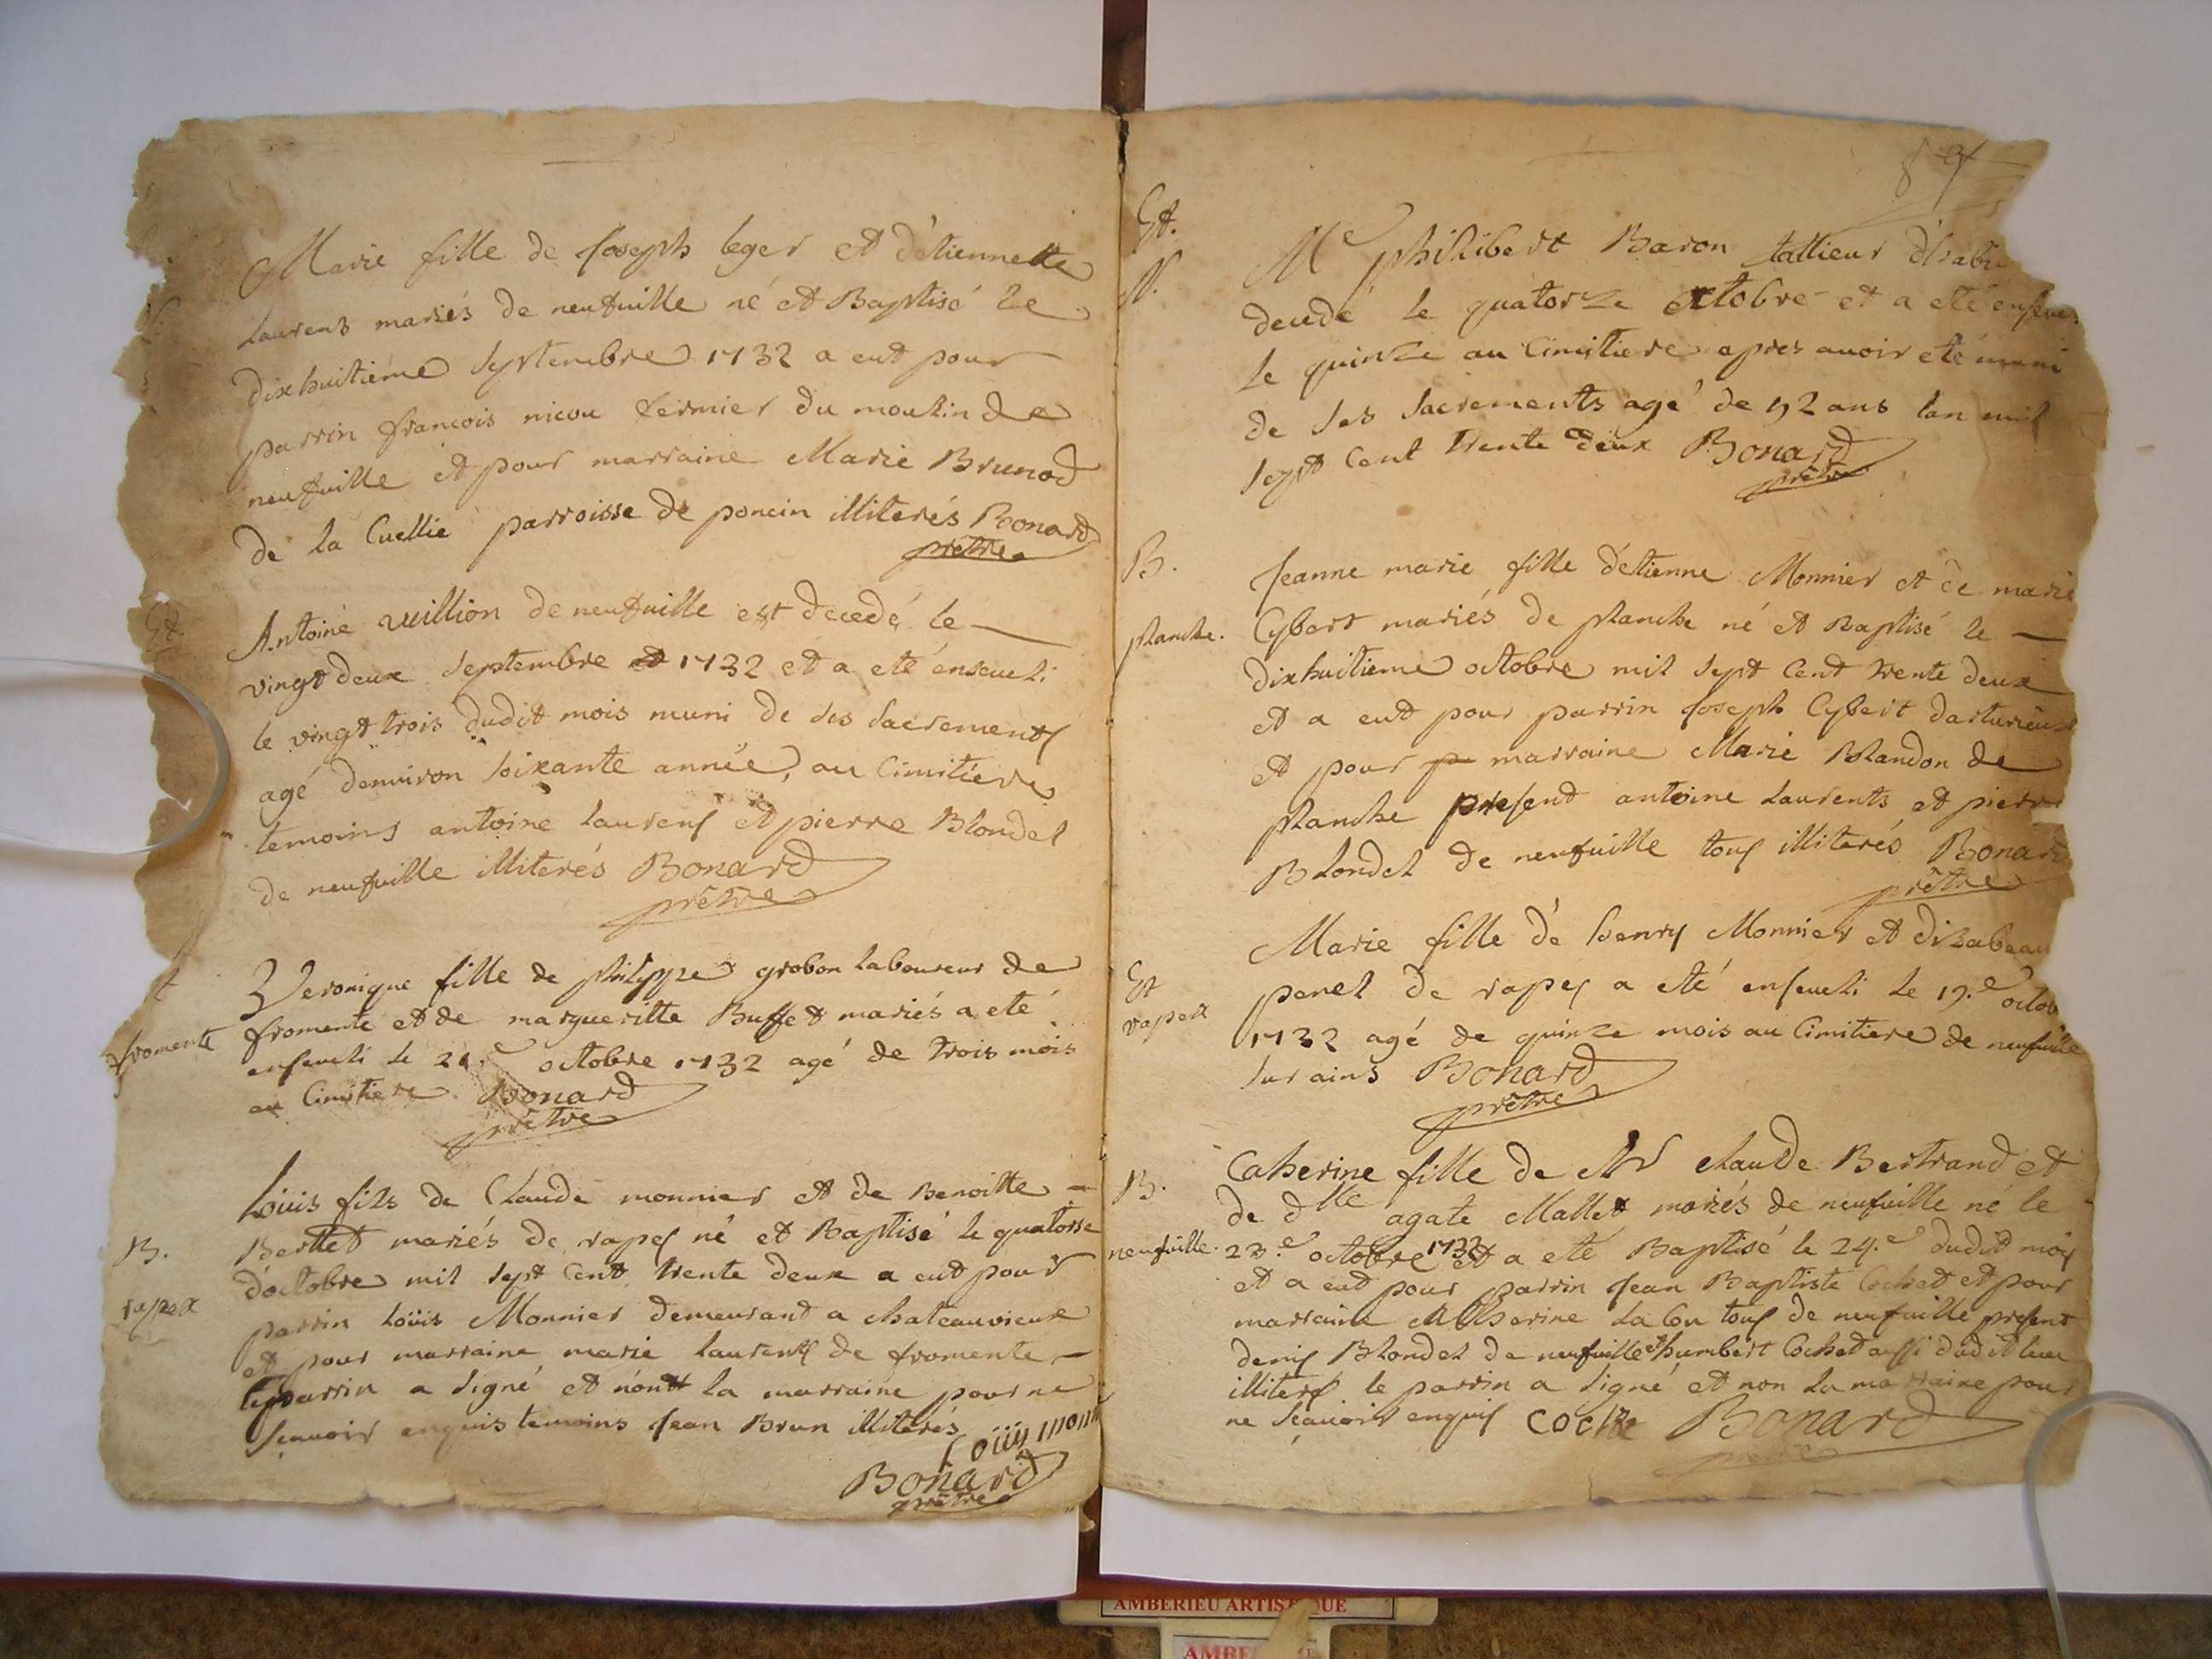 Marie fille de Joseph leger et d'etiennette
Laurens mariés de neufuille né et Baptisé le
dixhuitiéme Septembre 1732 a eut pour
parrin francois nicou fermier du moulin de
neufuille et pour marraine Marie Brunod
de la Cuellie parroisse de poncin illiterés Bonard
prêtre
Antoine vuillion de neufuille est decedé le
vingt deux Septembre 1732 et a eté enseueli
le vingt trois dudit mois muni de ses Sacrements
agé denuiron soixante année, au Cimitiere
temoins antoine Laurens et pierre Blondel
de neufuille illiterés Bonard
prêtre
fromente
Veronique fille de philippe grobon laboureur de
fromente et de margueritte Buffet mariés a eté
enseueli le octobre 1732 agé de trois mois
au Cimitiere Bonard
prêtre
B.
rapex
Loüis fils de Claude monnier et de Benoitte
Berthet mariés de rapes né et Baptisé le quatorse
d'octobre mil sept Cent trente deux a eut pour
parrin Loüis Monnier demeurant a chateauvieux
et pour marraine marie laurents de fromente
le parrin a signé et non la marraine pour ne
Scauoir enquis temoins Jean Brun illiterés
Loüis monn
Bonard
prêtre
89
Et.
N.
Me philibert Baron tallieur d'habi
decedé le quatorze octobre et a eté enseue
le quinze au Cimitiere apres auoir eté muni
de ses Sacrements agé de 92 ans lan mil
sept Cent trente deux Bonard
prêtre
B.
planche.
Jeanne marie fille d'etienne Monnier et de marie
Cybert mariés de planche né et Baptisé le
dixhuitieme octobre mil sept Cent trente deux
et a eut pour parrin Joseph Cybert darturieux
et pour marraine Marie Blandon de
planche present antoine Laurents et pierre
Blondel de neufuille tous illiterés Bonard
prêtre
Et
rapex
Marie fille de henry Monnier et dizabeau
penel de rapes a eté enseueli le 19.e octob
1732 agé de quinze mois au Cimitiere de neufuille
sur ains Bonard
prêtre
B.
neufuille.
Catherine fille de Mr claude Bertrand et
de dlle agate Mallet mariés de neufuille né le
23.e octobre 1732 et a eté Baptisé le 24.e dudit mois
et a eut pour parrin Jean Baptiste Cochet et pour
marraine Catherine tous de neufuille present
denis Blondel de neufuille et humbert Cochet aussi dudit lieu
illiterés le parrin a signé et non la marraine pour
ne Scauoir enquis coche Bonard
prêtre
AMBERIEU ARTISTIQUE
AMBE